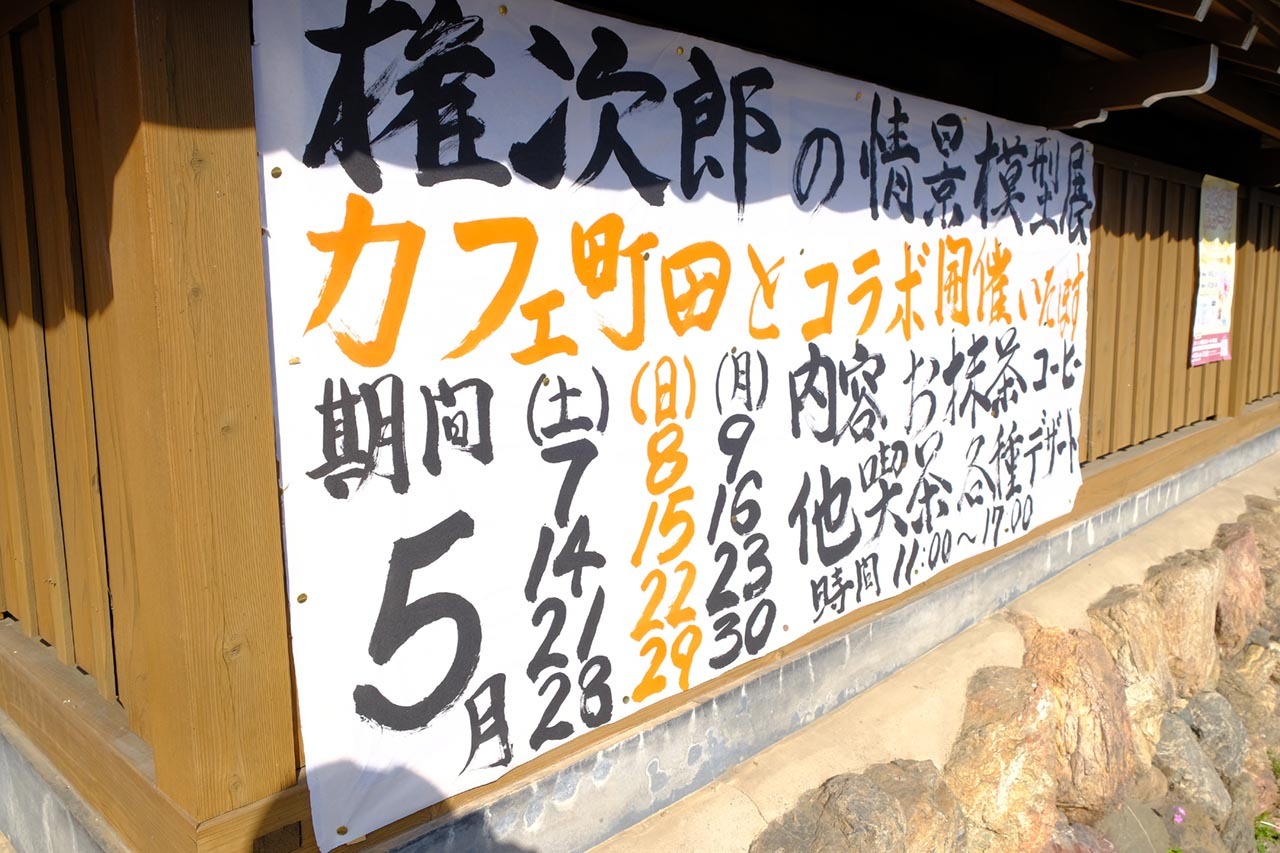 権次郎の情景模型展
カフェ町田とコラボ開催いたします
期間 (土) (日) (月)
5月
7 8 9
14 15 16
21 22 23
28 29 30
内容 お抹茶 コーヒー
他喫茶 各種デザート
時間 11:00～17:00